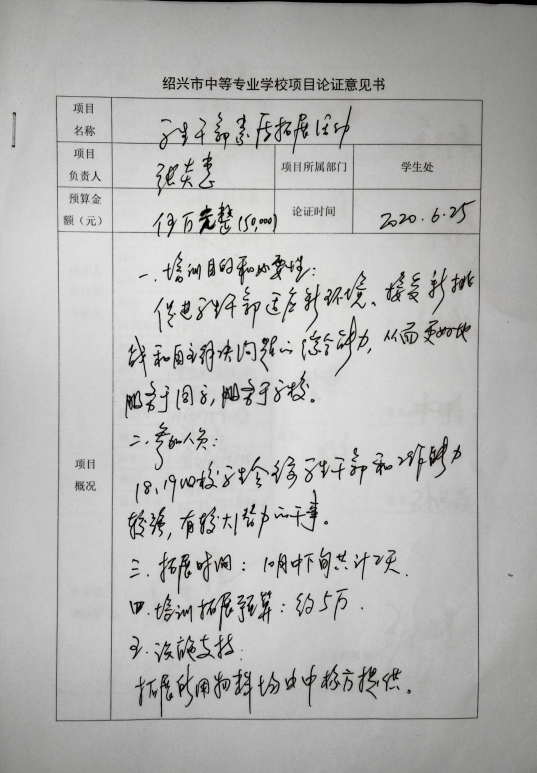 绍兴市中等专业学校项目论证意见书
项目名称 学生干部素质拓展活动
项目负责人 张炎意 项目所属部门 学生处
预算金额（元） 伍万元整(50,000) 论证时间 2020.6.25
项目概况
一.培训目的和必要性:
促进学生干部适应新环境、接受新挑
战和自主解决问题的综合能力,从而更好地
服务于同学,服务于学校。
二.参加人员:
18、19级校学生会 学生干部和工作能力
较强,有较大潜力的干事。
三.拓展时间:10月中下旬共计2天.
四.培训拓展预算:约5万.
五.设施支持:
拓展所用物料均由中标方提供。